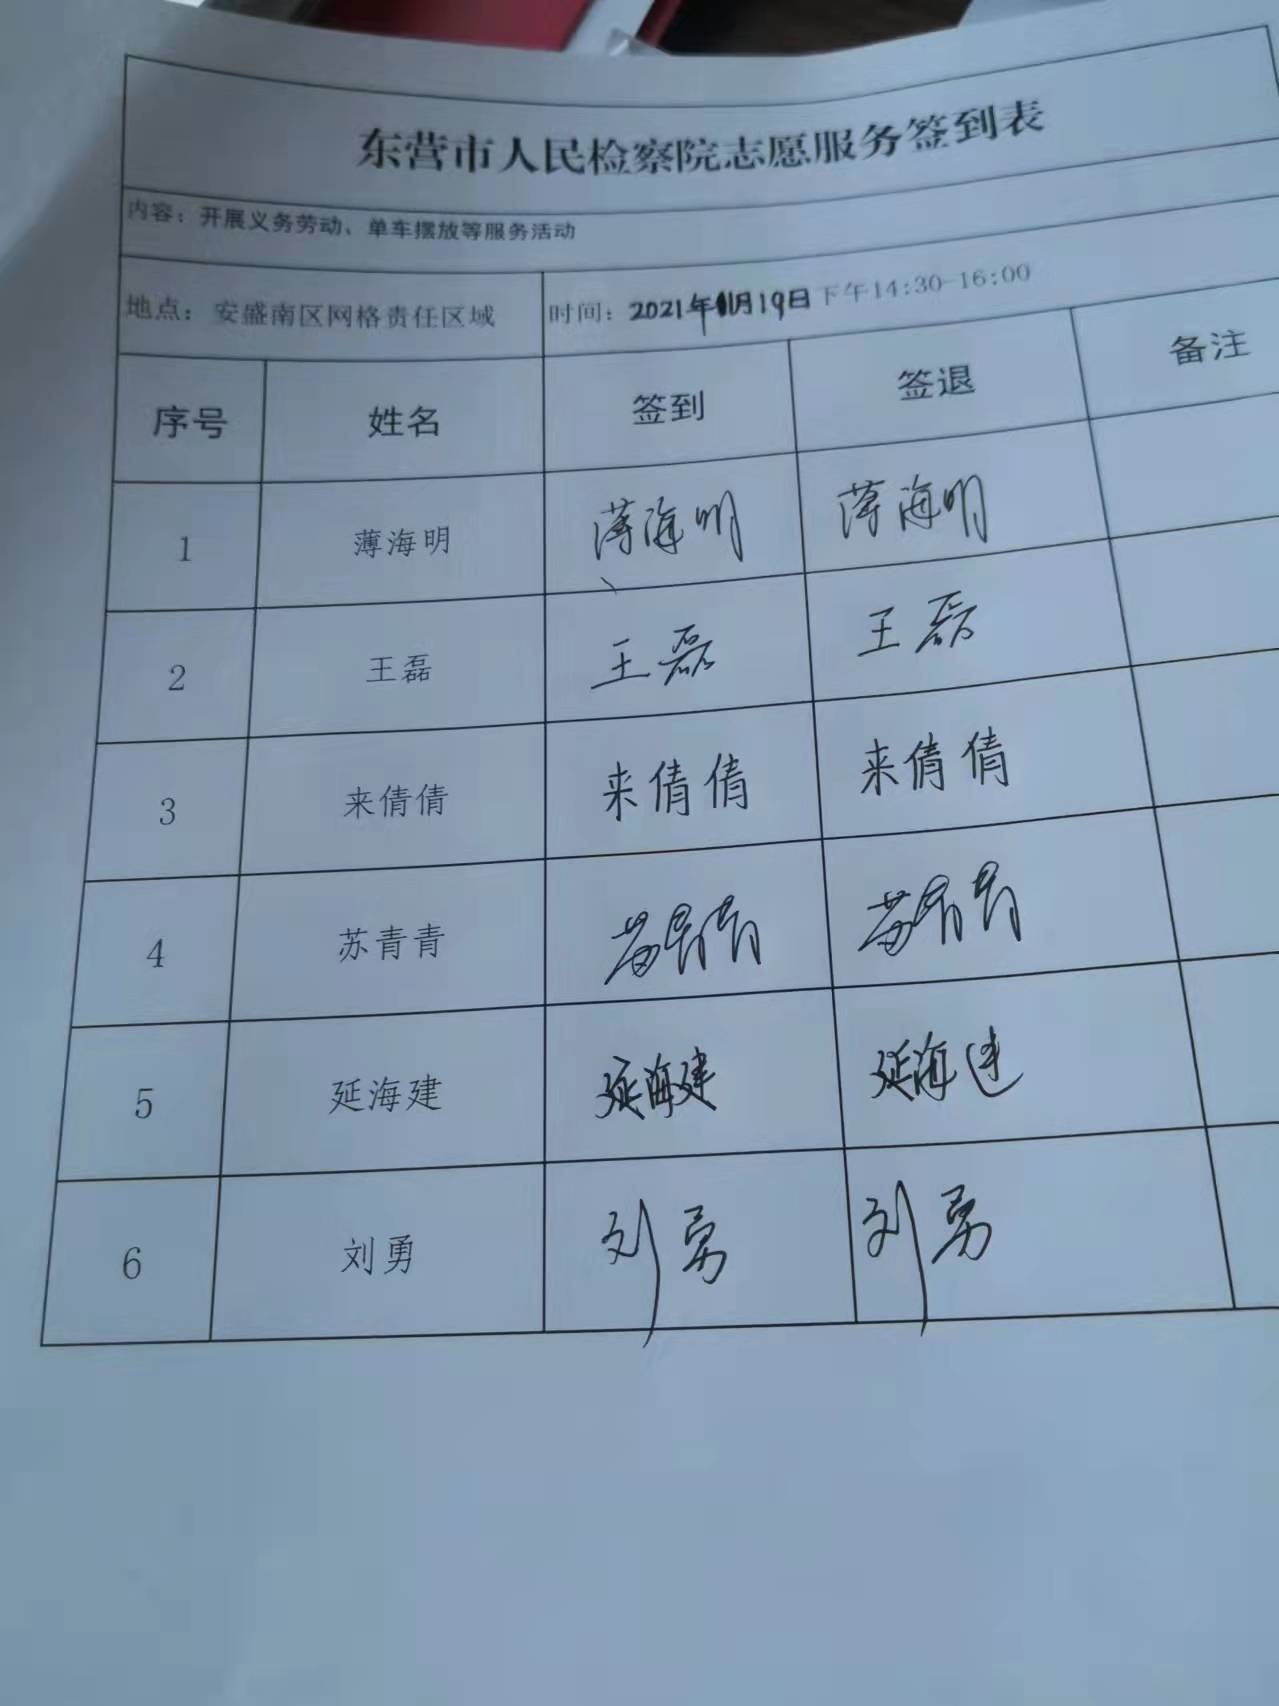 东营市人民检察院志愿服务签到表
内容：开展义务劳动、单车摆放等服务活动
地点：安盛南区网格责任区域 时间：2021年11月19日下午14:30-16:00
序号 姓名 签到 签退 备注
1 薄海明 薄海明 薄海明
2 王磊 王磊 王磊
3 来倩倩 来倩倩 来倩倩
4 苏青青 苏青青 苏青青
5 延海建 延海建 延海建
6 刘勇 刘勇 刘勇